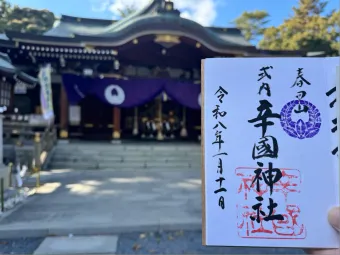 春日山
式内
辛國神社
令和八年一月十一日